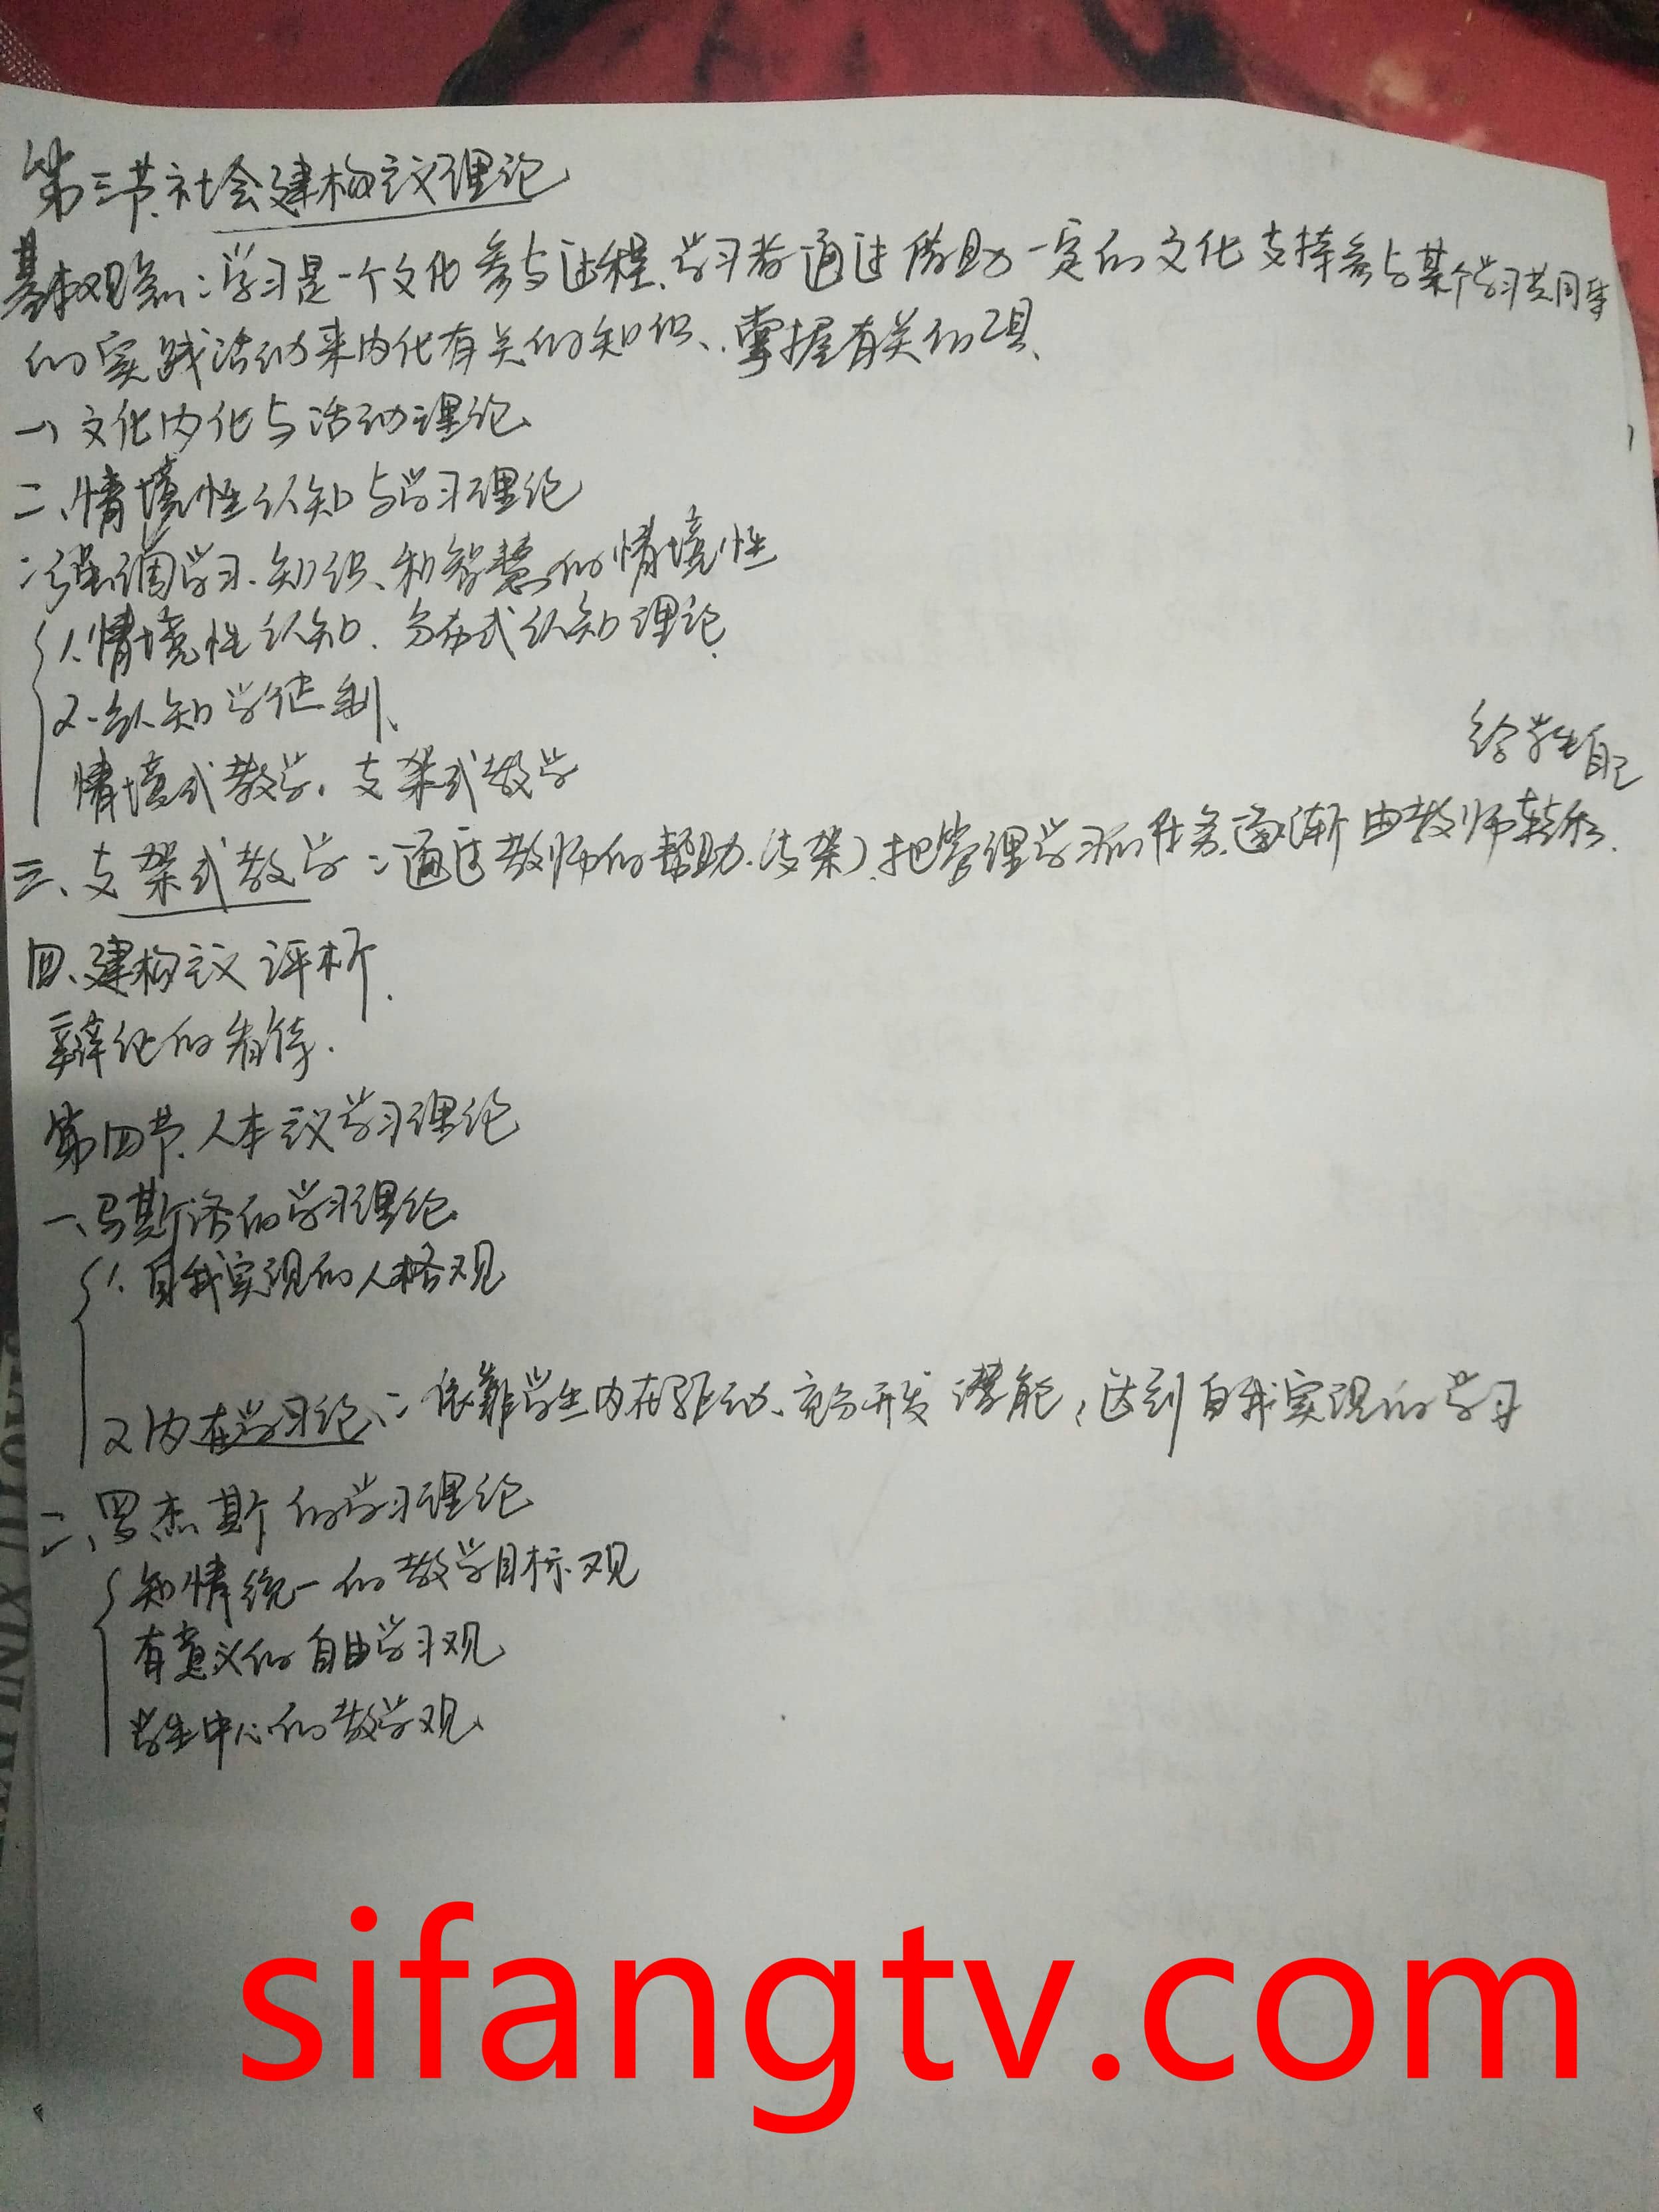 第三节.社会建构主义理论
基本观点:学习是一个文化参与过程.学习者通过借助一定的文化支持参与某个学习共同体
的实践活动来内化有关的知识、掌握有关的工具、
一、文化内化与活动理论
二、情境性认知与学习理论
:强调学习、知识、和智慧的情境性
1.情境性认知、分布式认知理论.
2.认知学徒制、
情境式教学. 支架式教学
给学生自己
三、支架式教学:通过教师的帮助(支架)把管理学习的任务逐渐由教师转移.
四、建构主义评析.
辩证的看待.
第四节.人本主义学习理论
一、马斯洛的学习理论
1.自我实现的人格观
2内在学习论:依靠学生内在驱动、充分开发潜能,达到自我实现的学习
二、罗杰斯的学习理论
知情统一的教学目标观
有意义的自由学习观
学生中心的教学观
sifangtv.com